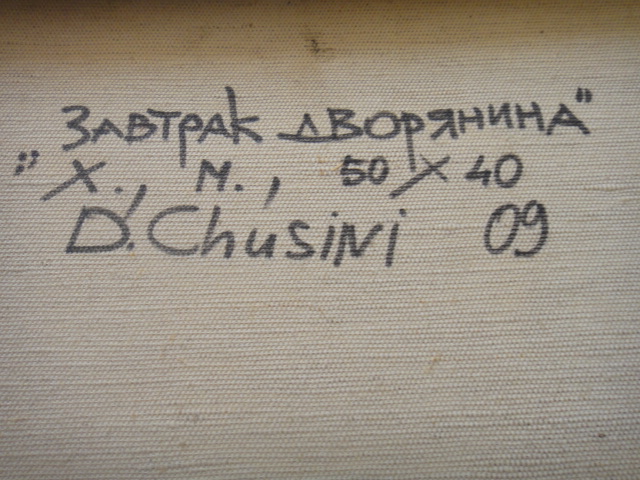 "Завтрак дворянина"
х., м., 50 х 40
D. Chusini 09